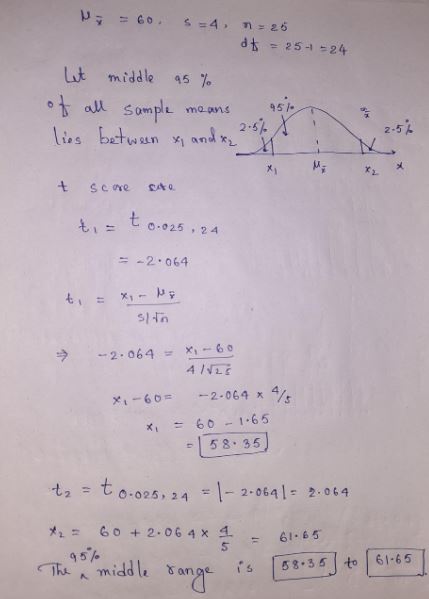 μx̄ = 60, s = 4, n = 25
df = 25-1 = 24
Let middle 95 %
of all sample means
lies between x₁ and x₂
95%
2.5%
2.5%
x₁ μx̄ x₂ x
t score are
t₁ = t 0.025, 24
= -2.064
t₁ = x₁ - μx̄ / s/√n
⇒ -2.064 = x₁ - 60 / 4/√25
x₁ - 60 = -2.064 x 4/5
x₁ = 60 - 1.65
= 58.35
t₂ = t 0.025, 24 = |-2.064| = 2.064
x₂ = 60 + 2.064 x 4/5 = 61.65
The 95% middle range is 58.35 to 61.65